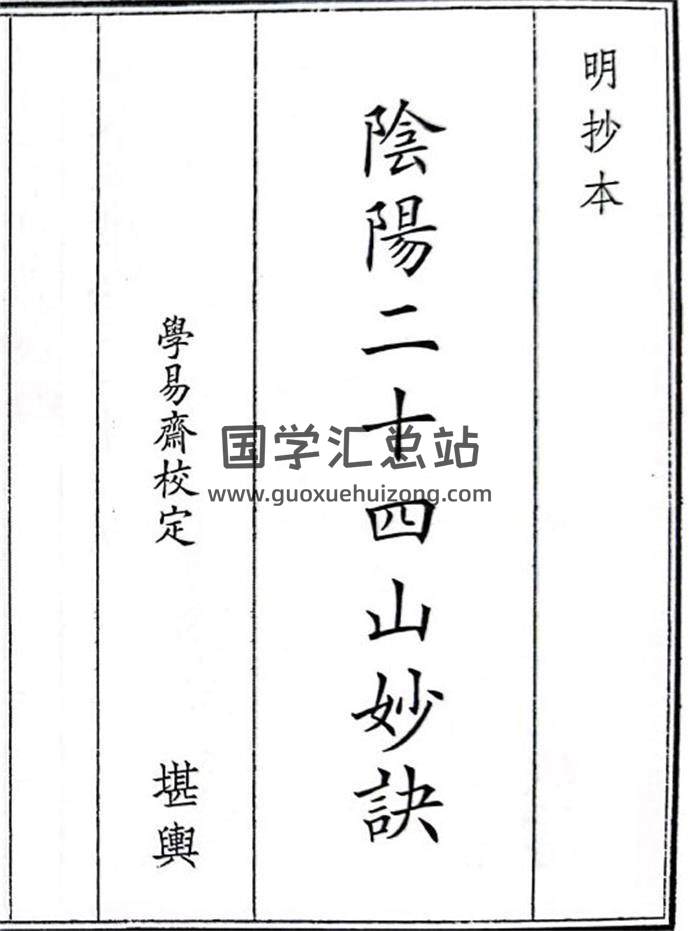 明抄本
陰陽二十四山妙訣
學易齋校定
堪輿
国学汇总站
www.guoxuehuizong.com